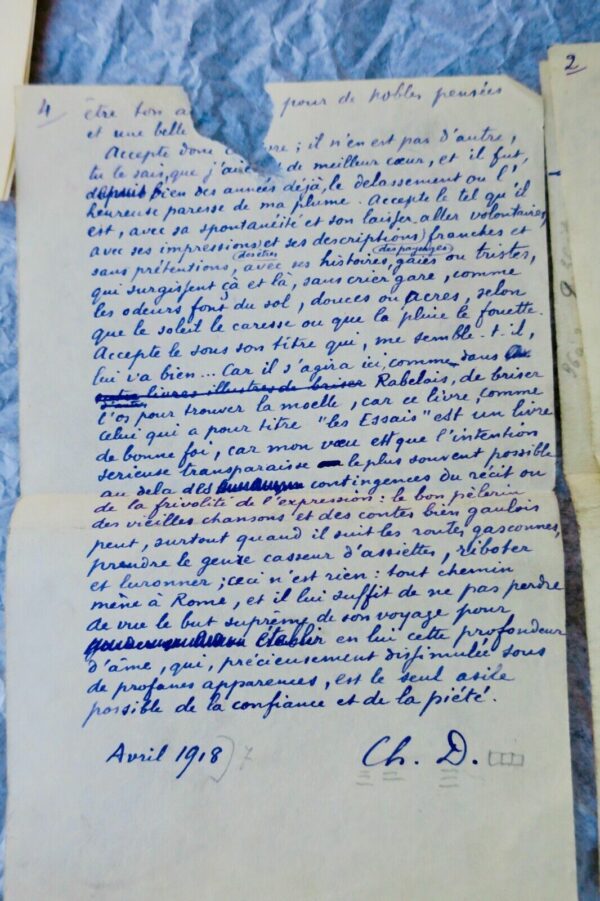 4
être ton a pour de nobles pensées
et une belle
Accepte donc ; il n'en est pas d'autre,
tu le sais, que j'aie de meilleur cœur, et il fut,
depuis bien des années déjà, le delassement ou l'
heureuse paresse de ma plume. Accepte le tel qu'il
est, avec sa spontanéité et son laisser-aller volontaires,
avec ses impressions (des êtres) et ses descriptions (des paysages) franches et
sans prétentions, avec ses histoires, gaies ou tristes,
qui surgissent çà et là, sans crier gare, comme
les odeurs font du sol, douces ou acres, selon
que le soleil le caresse ou que la pluie le fouette.
Accepte le sous son titre qui, me semble-t-il,
lui va bien... Car il s'agira ici, comme dans
livres illustres de briser Rabelais, de briser
l'os pour trouver la moelle, car ce livre, comme
celui qui a pour titre "les Essais" est un livre
de bonne foi, car mon vœu est que l'intention
serieuse transparaisse le plus souvent possible
au dela des contingences du récit ou
de la frivolité de l'expression : le bon pèlerin
des vieilles chansons et des contes bien gaulois
peut, surtout quand il suit les routes gasconnes,
prendre le genre casseur d'assiettes, riboter
et luronner ; ceci n'est rien : tout chemin
mène à Rome, et il lui suffit de ne pas perdre
de vue le but suprême de son voyage pour
établir en lui cette profondeur
d'âme, qui, précieusement dissimulée sous
de profanes apparences, est le seul asile
possible de la confiance et de la piété.
Avril 1918) 7
Ch. D.
2